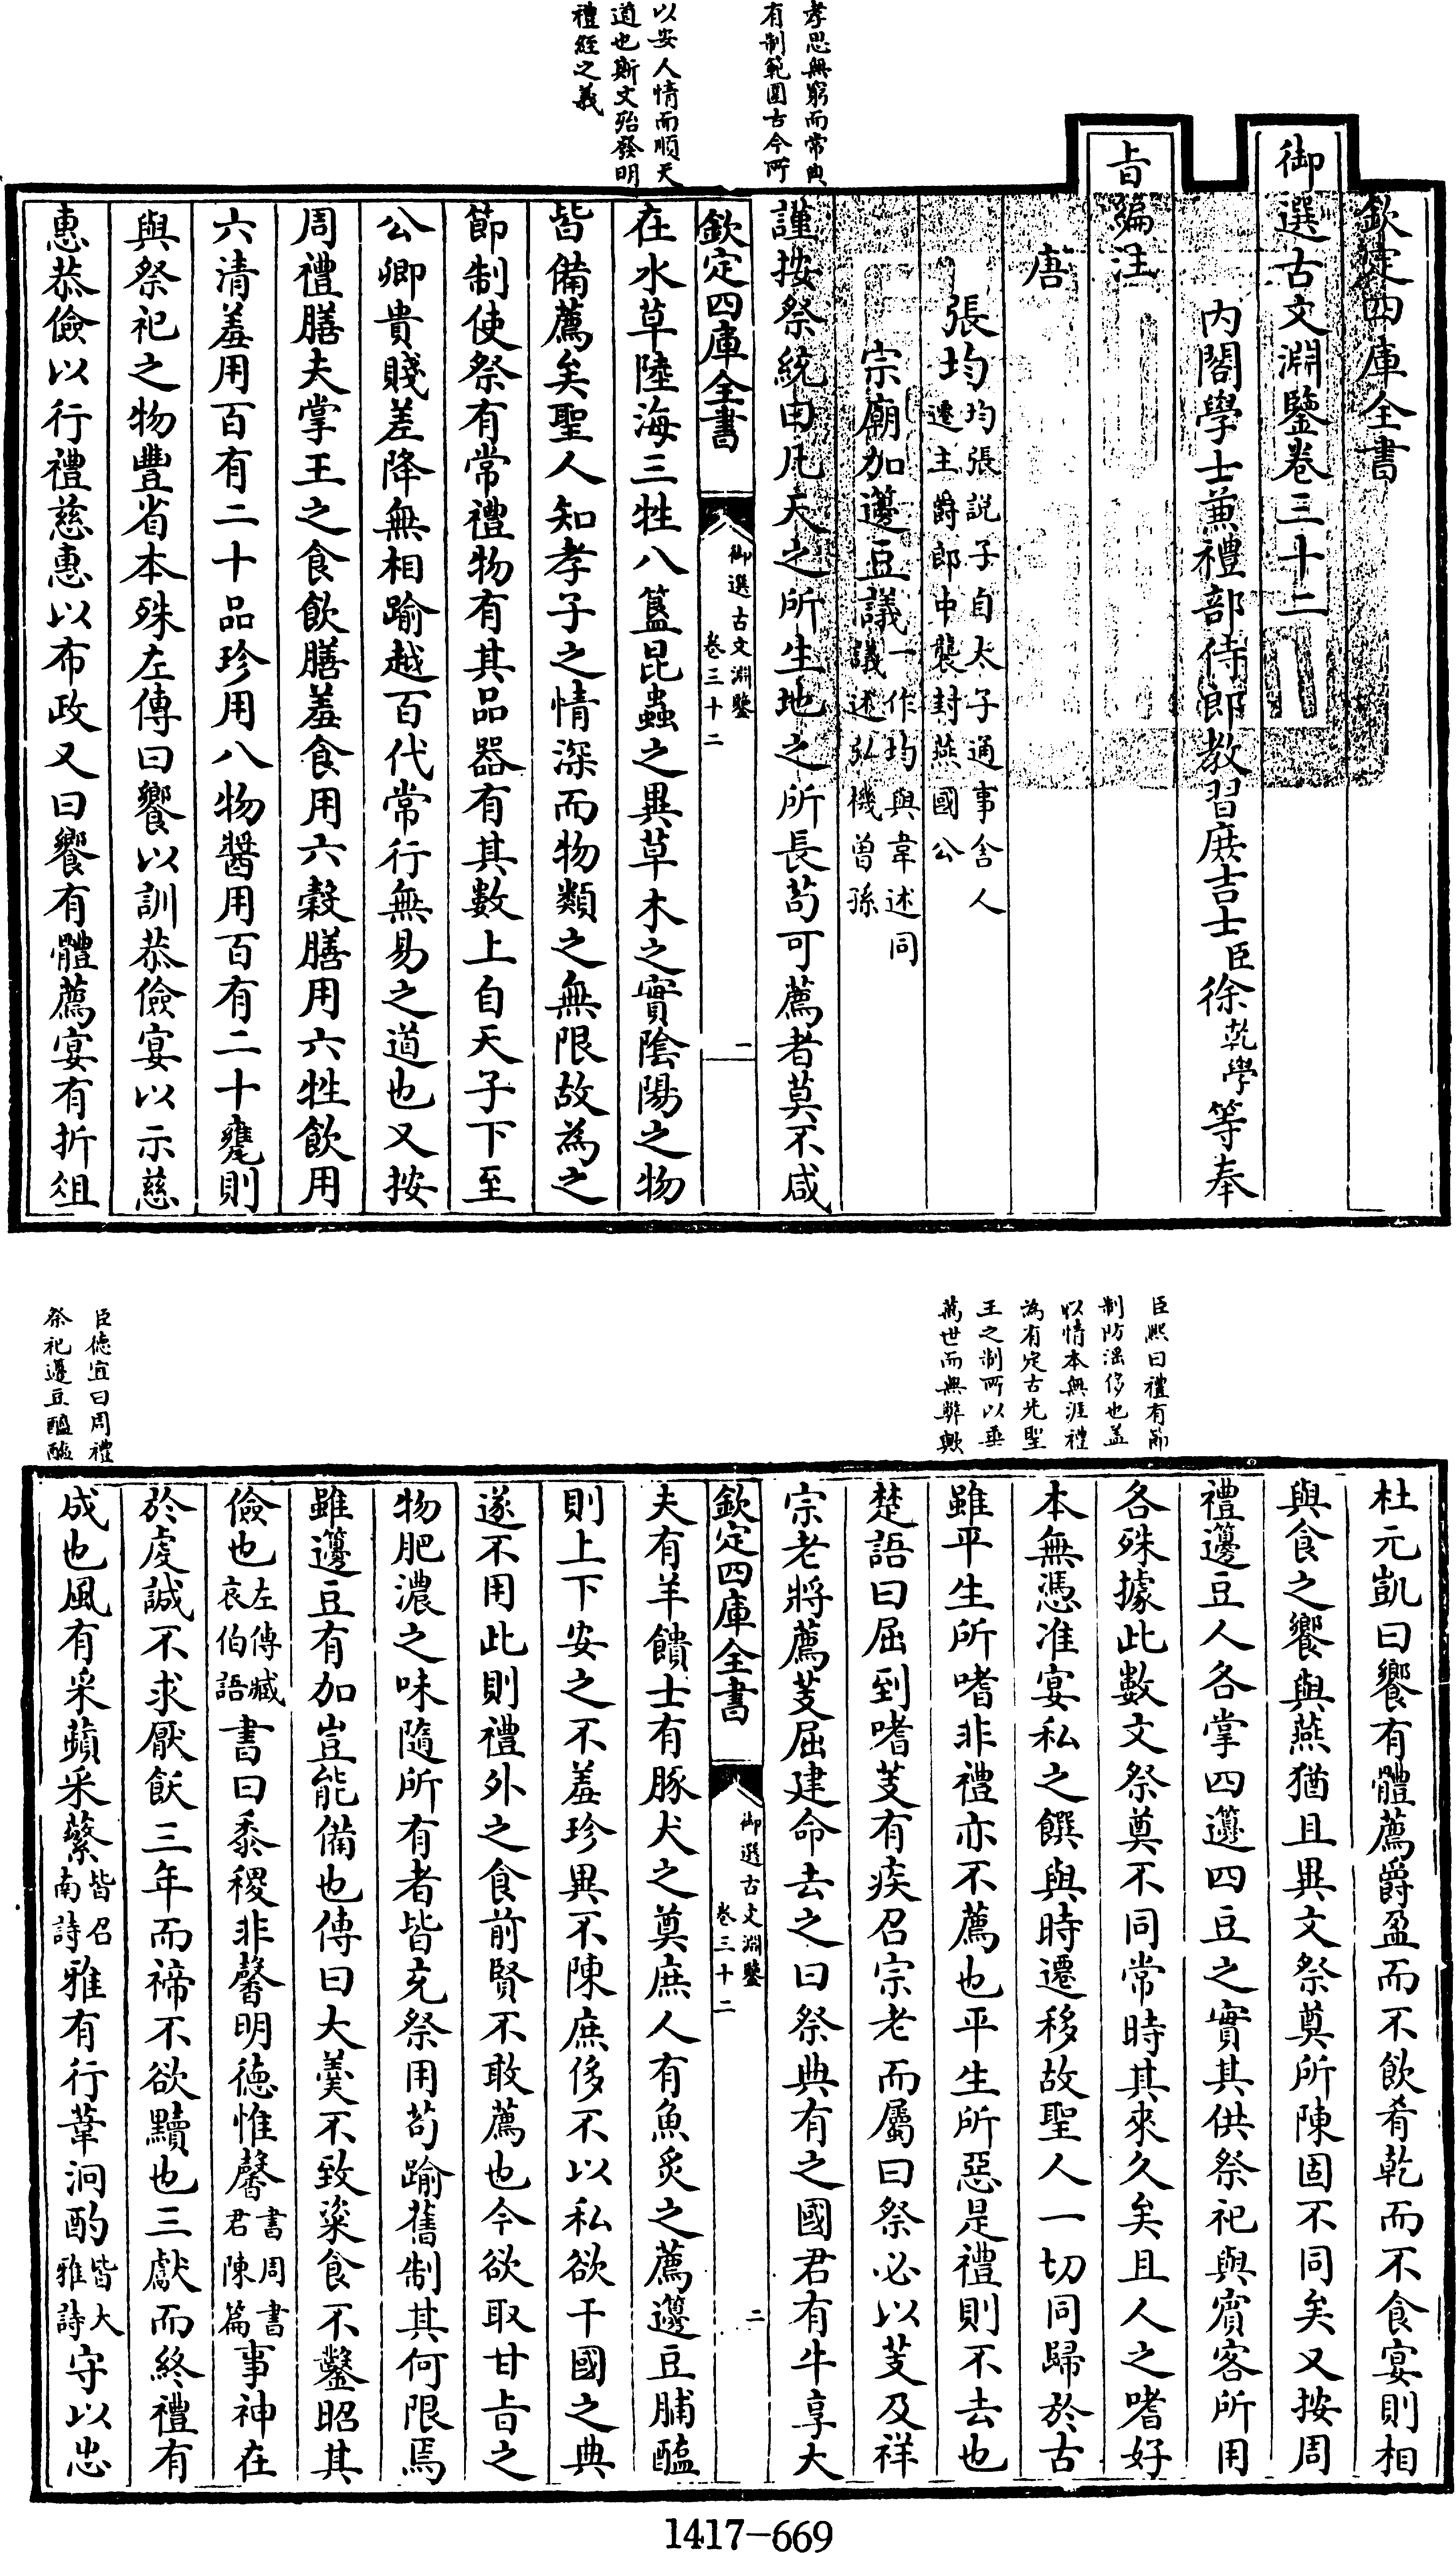 孝思無窮而常典
有制範圍古今所
以安人情而順天
道也斯文殆發明
禮經之義
欽定四庫全書
御選古文淵鑒卷三十二
內閣學士兼禮部侍郎教習庶吉士臣徐乾學等奉
旨編注
唐
張均均張說子自太子通事舍人遷主爵郎中襲封燕國公
宗廟加籩豆議一作均與韋述同議述弘機曾孫
謹按祭統曰凡天之所生地之所長苟可薦者莫不咸
欽定四庫全書
御選古文淵鑒
卷三十二
一
在水草陸海三牲八簋昆蟲之異草木之實陰陽之物
皆備薦矣聖人知孝子之情深而物類之無限故為之
節制使祭有常禮物有其品器有其數上自天子下至
公卿貴賤差降無相踰越百代常行無易之道也又按
周禮膳夫掌王之食飲膳羞食用六穀膳用六牲飲用
六清羞用百有二十品珍用八物醬用百有二十甕則
與祭祀之物豐省本殊左傳曰饗以訓恭儉宴以示慈
惠恭儉以行禮慈惠以布政又曰饗有體薦宴有折俎
臣熙曰禮有節
制防淫侈也蓋
以情本無涯禮
為有定古先聖
王之制所以垂
萬世而無弊歟
臣德宜曰周禮
祭祀籩豆醯醢
杜元凱曰饗有體薦爵盈而不飲肴乾而不食宴則相
與食之饗與燕猶且異文祭奠所陳固不同矣又按周
禮籩豆人各掌四籩四豆之實其供祭祀與賓客所用
各殊據此數文祭奠不同常時其來久矣且人之嗜好
本無憑准宴私之饌與時遷移故聖人一切同歸於古
雖平生所嗜非禮亦不薦也平生所惡是禮則不去也
楚語曰屈到嗜芰有疾召宗老而屬曰祭必以芰及祥
宗老將薦芰屈建命去之曰祭典有之國君有牛享大
欽定四庫全書
御選古文淵鑒
卷三十二
二
夫有羊饋士有豚犬之奠庶人有魚炙之薦籩豆脯醢
則上下安之不羞珍異不陳庶侈不以私欲干國之典
遂不用此則禮外之食前賢不敢薦也今欲取甘旨之
物肥濃之味隨所有者皆充祭用苟踰舊制其何限焉
雖籩豆有加豈能備也傳曰大羹不致粢食不鑿昭其
儉也左傳臧哀伯語書曰黍稷非馨明德惟馨書周書君陳篇事神在
於虔誠不求厭飫三年而禘不欲黷也三獻而終禮有
成也風有采蘋采蘩皆召南詩雅有行葦泂酌皆大雅詩守以忠
1417-669